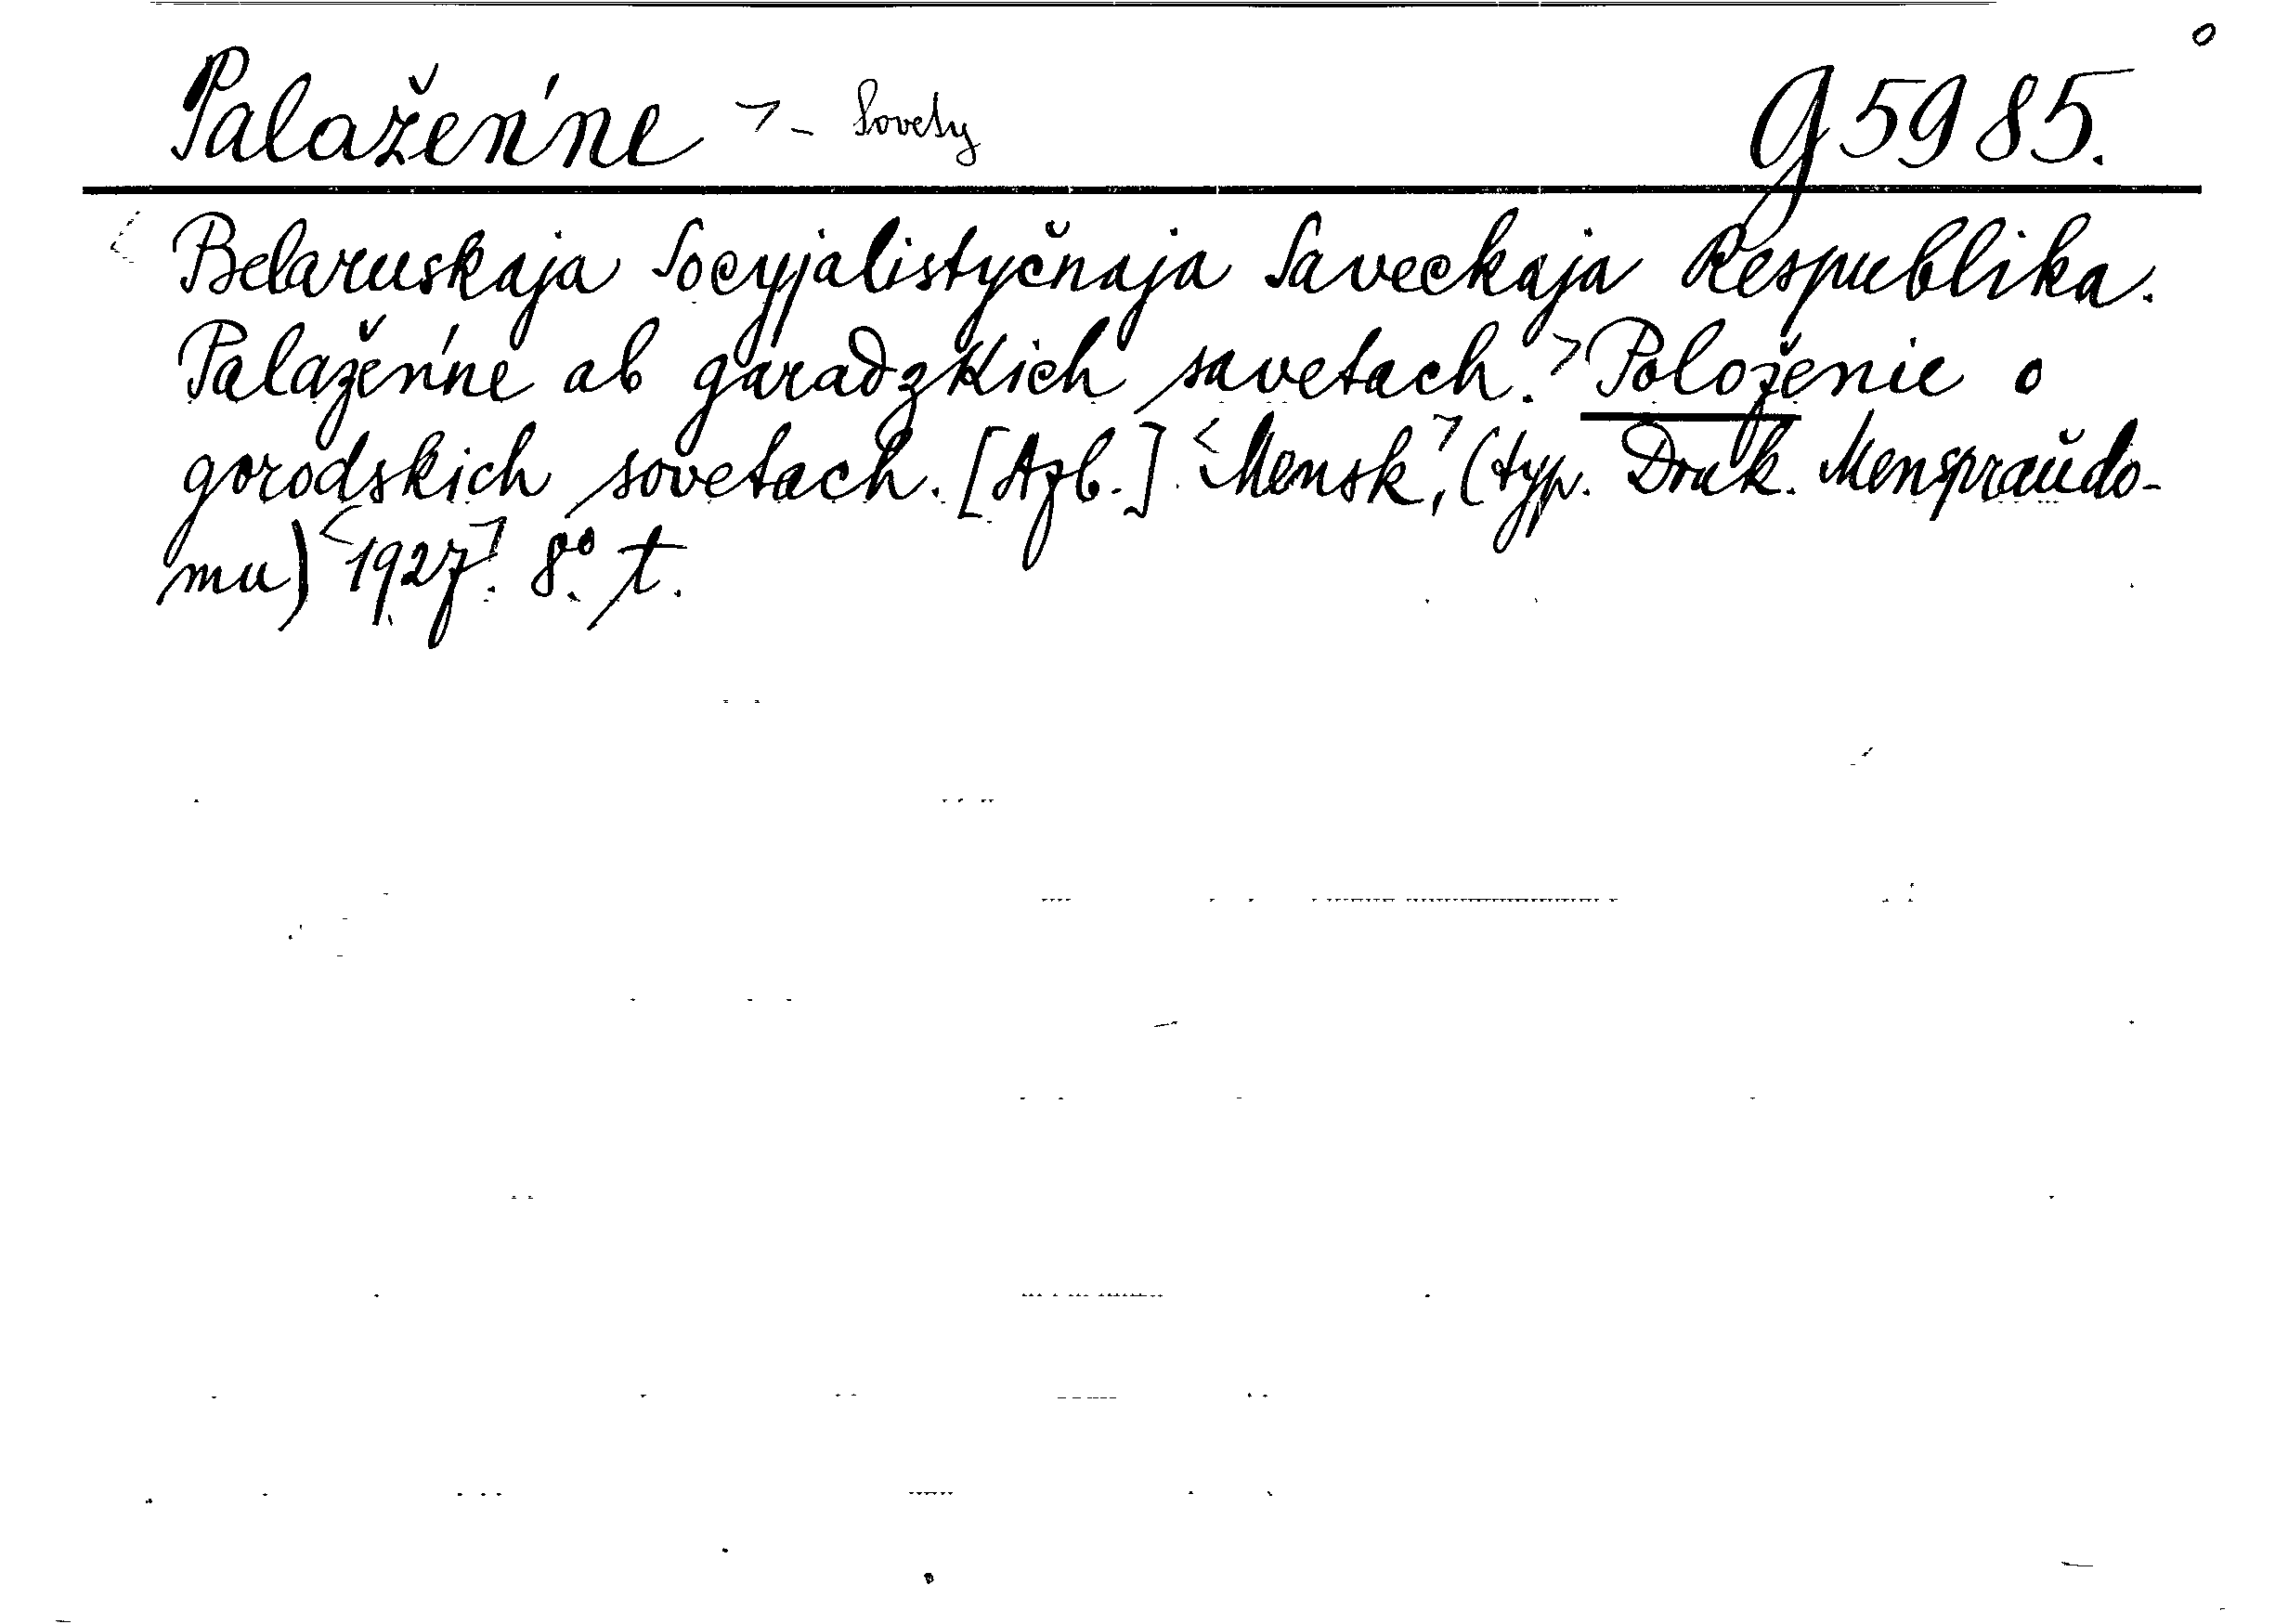 Palažeńne > - Sovety G 5985.
< Belaruskaja Socyjalistyčnaja Saveckaja Respublika.
Palažeńne ab garadzkich savetach. > Položenie o
gorodskich sovetach. [Azb.] < Mensk, > (typ. Druk. Menspraŭdo-
mu) < 1927 >. 8° t.